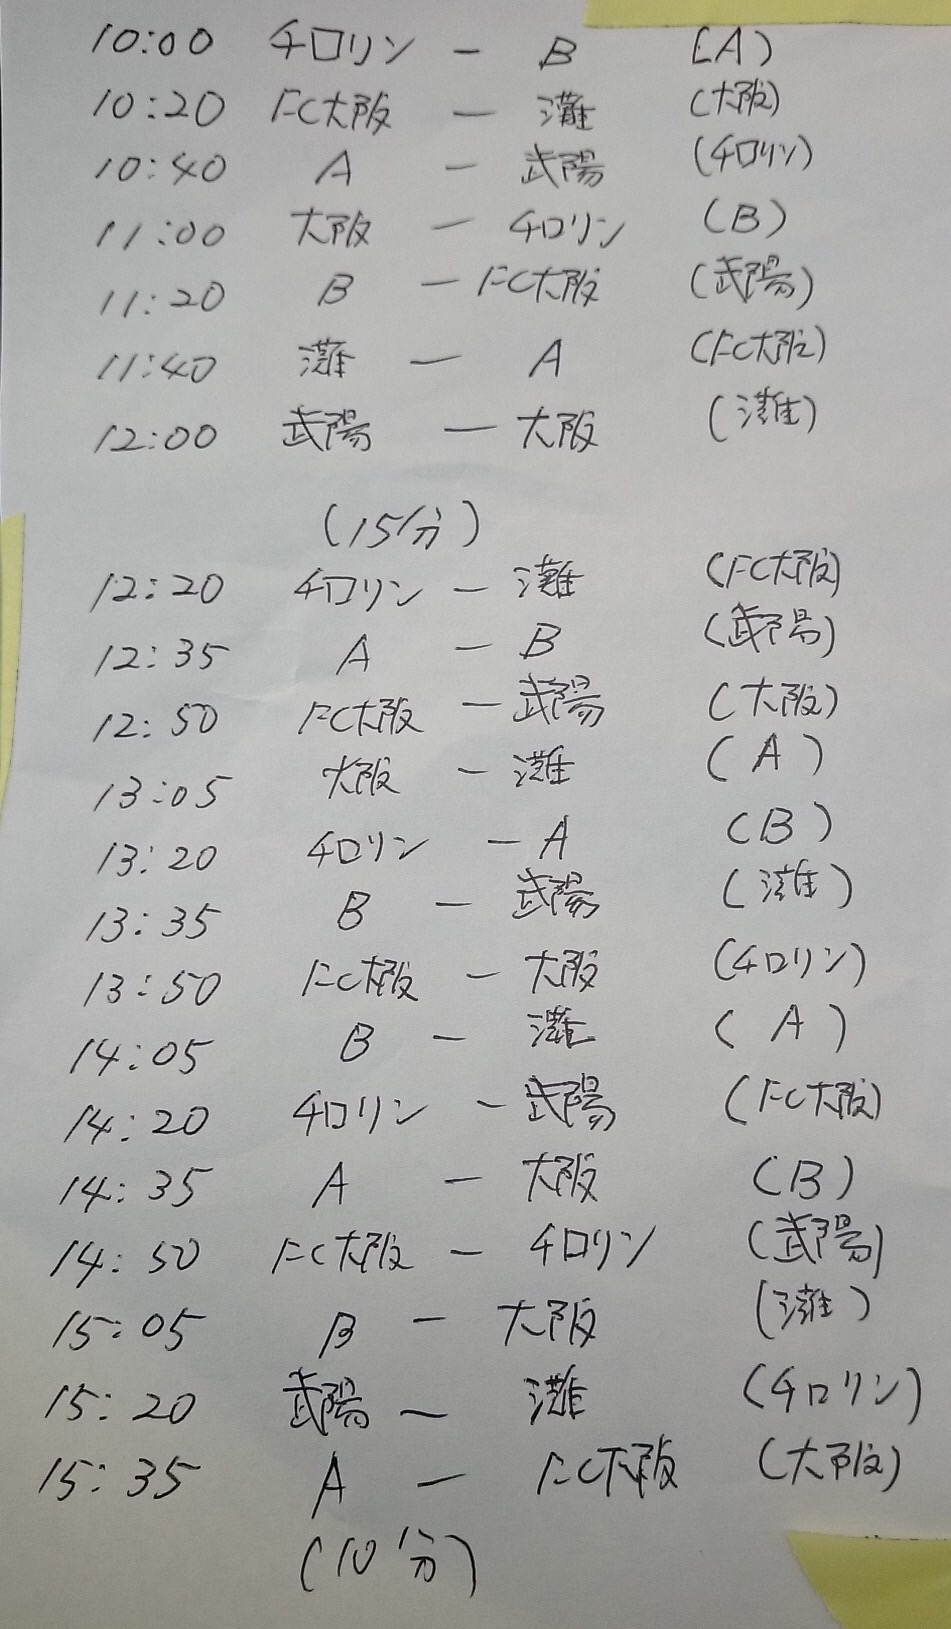 10:00 チロリン - B (A)
10:20 FC大阪 - 灘 (大阪)
10:40 A - 武陽 (チロリン)
11:00 大阪 - チロリン (B)
11:20 B - FC大阪 (武陽)
11:40 灘 - A (FC大阪)
12:00 武陽 - 大阪 (灘)
(15分)
12:20 チロリン - 灘 (FC大阪)
12:35 A - B (武陽)
12:50 FC大阪 - 武陽 (大阪)
13:05 大阪 - 灘 (A)
13:20 チロリン - A (B)
13:35 B - 武陽 (灘)
13:50 FC大阪 - 大阪 (チロリン)
14:05 B - 灘 (A)
14:20 チロリン - 武陽 (FC大阪)
14:35 A - 大阪 (B)
14:50 FC大阪 - チロリン (武陽)
15:05 B - 大阪 (灘)
15:20 武陽 - 灘 (チロリン)
15:35 A - FC大阪 (大阪)
(10分)